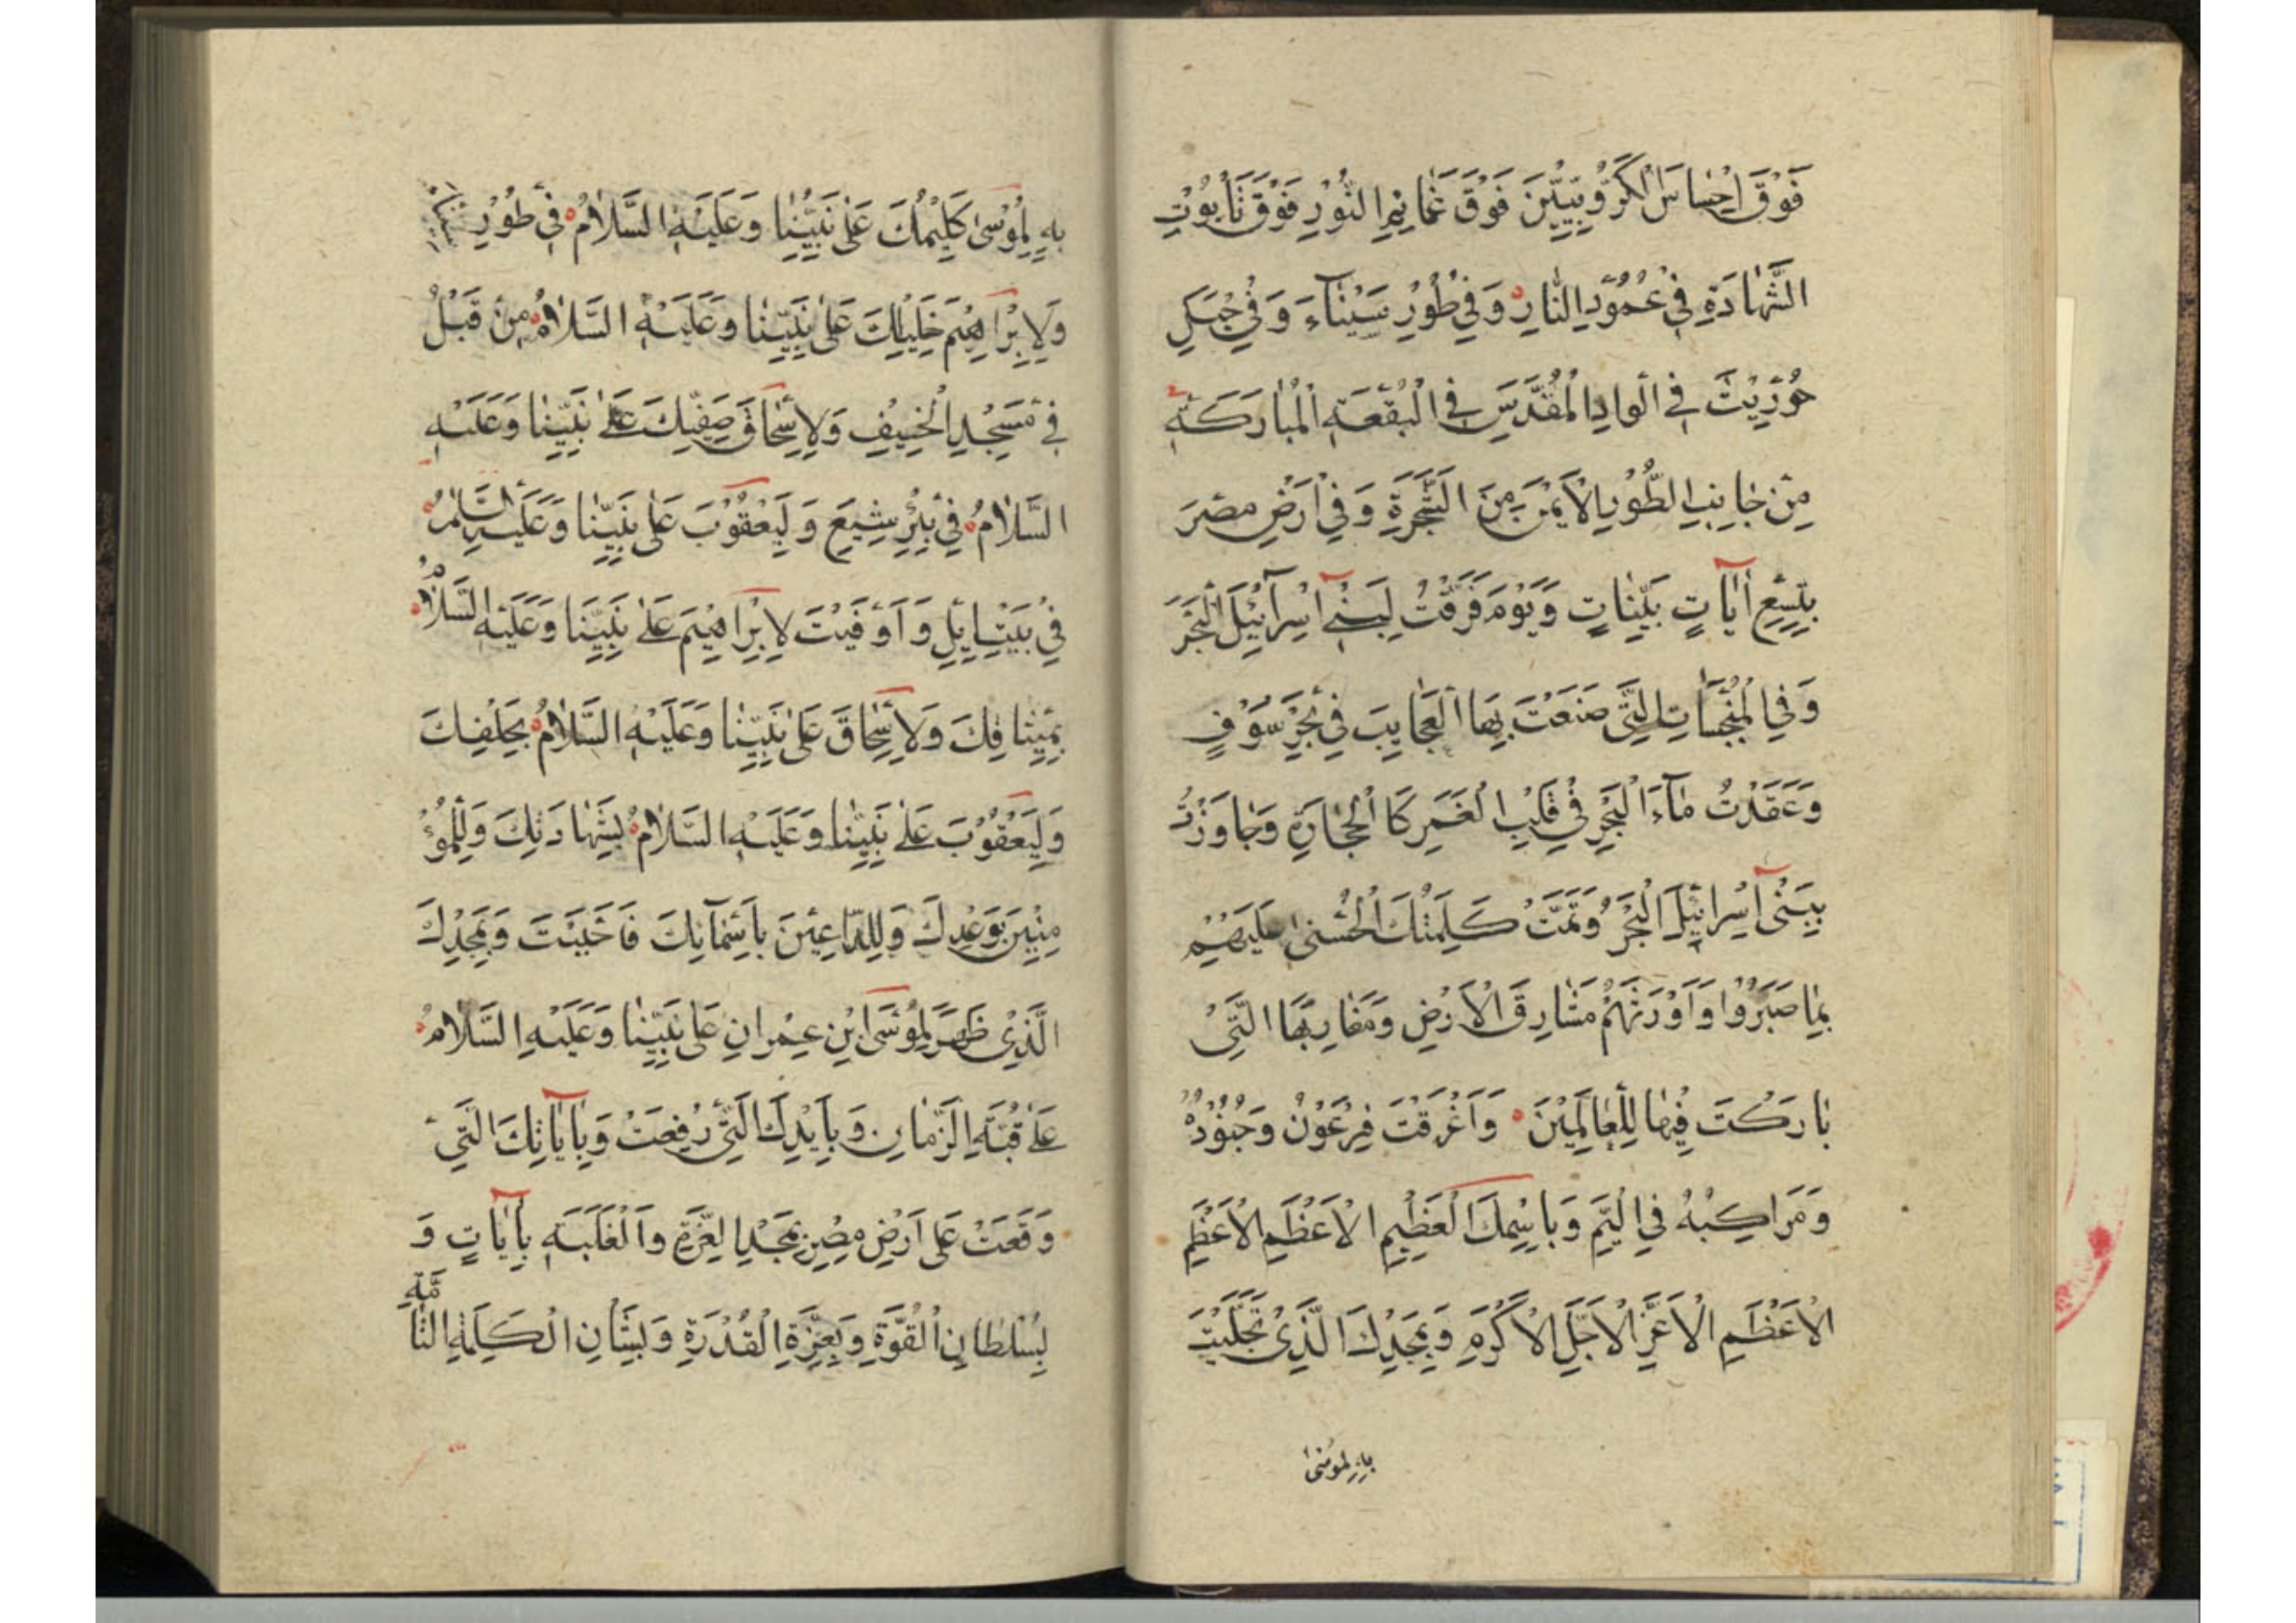 فَوْقَ اِحْسٰاسِ الْكَرُّوبِيّٖينَ فَوْقَ غَمٰائِمِ النُّوْرِ فَوْقَ تَابُوْتِ
الشَّهٰادَةِ فِي عَمُوْدِ النّٰارِ وَفِي طُوْرِ سَيْنٰآءَ وَفِي جَبَلِ
حُوْرِيْثَ فِي الْوٰادِ الْمُقَدَّسِ فِي الْبُقْعَةِ الْمُبٰارَكَةِ
مِنْ جٰانِبِ الطُّوْرِ الْاَيْمَنِ مِنَ الشَّجَرَةِ وَفِي اَرْضِ مِصْرَ
بِتِسْعِ اٰيٰاتٍ بَيِّنٰاتٍ وَيَوْمَ فَرَقْتَ لِبَنِي اِسْرٰآئِيْلَ الْبَحْرَ
وَفِي الْمُنْبَجِسٰاتِ الَّتِي صَنَعْتَ بِهَا الْعَجٰايِبَ فِي بَحْرِ سَوْفٍ
وَعَقَدْتَ مٰآءَ الْبَحْرِ فِي قَلْبِ الْغَمْرِ كَالْحِجٰارَةِ وَجٰاوَزْتَ
بِبَنِي اِسْرٰائِيْلَ الْبَحْرَ وَتَمَّتْ كَلِمَتُكَ الْحُسْنٰى عَلَيْهِمْ
بِمٰا صَبَرُوْا وَاَوْرَثْتَهُمْ مَشٰارِقَ الْاَرْضِ وَمَغٰارِبَهَا الَّتِي
بٰارَكْتَ فِيْهٰا لِلْعٰالَمِيْنَ وَاَغْرَقْتَ فِرْعَوْنَ وَجُنُوْدَهُ
وَمَرٰاكِبَهُ فِي الْيَمِّ وَبِاسْمِكَ الْعَظِيْمِ الْاَعْظَمِ الْاَعْظَمِ
الْاَعْظَمِ الْاَعَزِّ الْاَجَلِّ الْاَكْرَمِ وَبِمَجْدِكَ الَّذِي تَجَلَّيْتَ
بِهٖ لِمُوْسٰى
بِهٖ لِمُوْسٰى كَلِيْمِكَ عَلٰى نَبِيِّنٰا وَعَلَيْهِ السَّلٰامُ فِي طُوْرِ سَيْنٰآءَ
وَلِاِبْرٰاهِيْمَ خَلِيْلِكَ عَلٰى نَبِيِّنٰا وَعَلَيْهِ السَّلٰامُ مِنْ قَبْلُ
فِي مَسْجِدِ الْخَيْفِ وَلِاِسْحٰاقَ صَفِيِّكَ عَلٰى نَبِيِّنٰا وَعَلَيْهِ
السَّلٰامُ فِي بِئْرِ شِيَعٍ وَلِيَعْقُوْبَ عَلٰى نَبِيِّنٰا وَعَلَيْهِ السَّلٰامُ
فِي بَيْتِ اِيْلٍ وَاَوْفَيْتَ لِاِبْرٰاهِيْمَ عَلٰى نَبِيِّنَا وَعَلَيْهِ السَّلٰامُ
بِمِيْثٰاقِكَ وَلِاِسْحٰاقَ عَلٰى نَبِيِّنٰا وَعَلَيْهِ السَّلٰامُ بِحَلْفِكَ
وَلِيَعْقُوْبَ عَلٰى نَبِيِّنٰا وَعَلَيْهِ السَّلٰامُ بِشَهٰادَتِكَ وَلِلْمُؤْ
مِنِيْنَ بِوَعْدِكَ وَلِلدّٰاعِيْنَ بِاَسْمٰآئِكَ فَاَجَبْتَ وَبِمَجْدِكَ
الَّذِي ظَهَرَ لِمُوْسَى ابْنِ عِمْرٰانَ عَلٰى نَبِيِّنٰا وَعَلَيْهِ السَّلٰامُ
عَلٰى قُبَّةِ الزَّمٰانِ وَبِاَيْدِكَ الَّتِي رُفِعَتْ وَبِاٰيٰاتِكَ الَّتِي
وَقَعَتْ عَلٰى اَرْضِ مِصْرَ بِمَجْدِ الْعِزَّةِ وَالْغَلَبَةِ بِاٰيٰاتٍ وَ
بِسُلْطٰانِ الْقُوَّةِ وَبِعِزَّةِ الْقُدْرَةِ وَبِشَاْنِ الْكَلِمَةِ التّٰامَّةِ